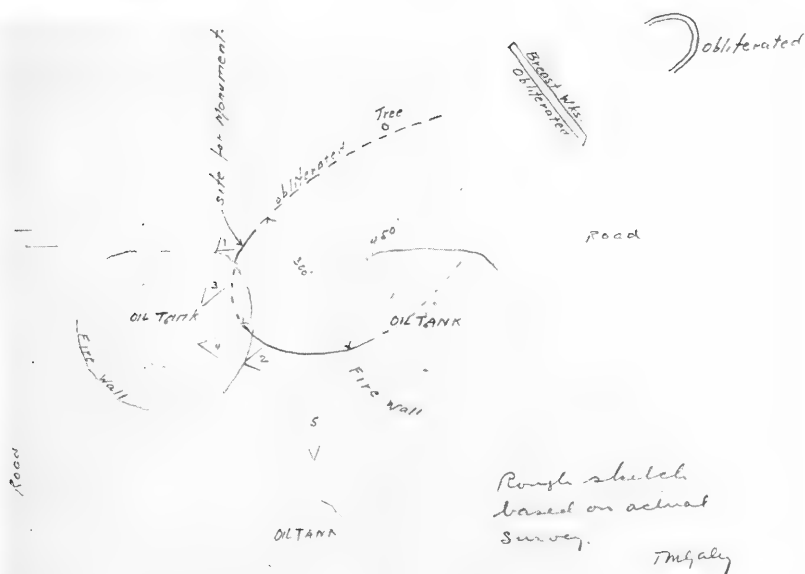 obliterated
Breast Wks.
Obliterated
Site for Monument.
Tree
obliterated
Road
1
450'
300'
3
OIL TANK
OIL TANK
Fire Wall
4
2
Fire Wall
5
Road
OIL TANK
Rough sketch
based on actual
Survey.